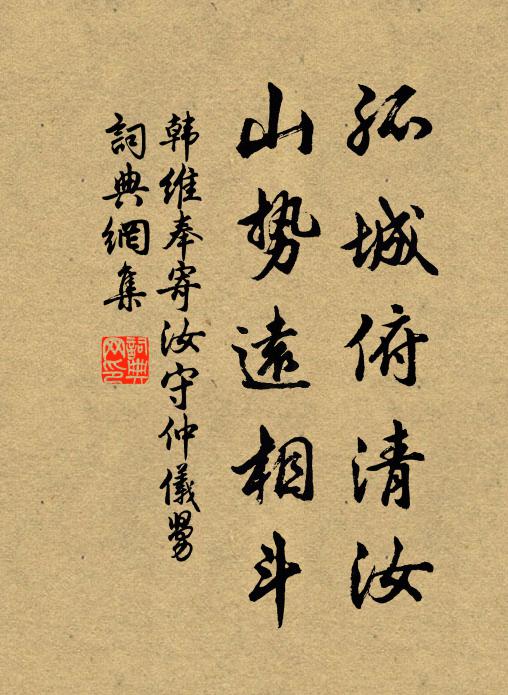 孤城俯清汝
山势遠相斗
韩維奉寄汝守仲儀舅
詞典網集
詞典网印